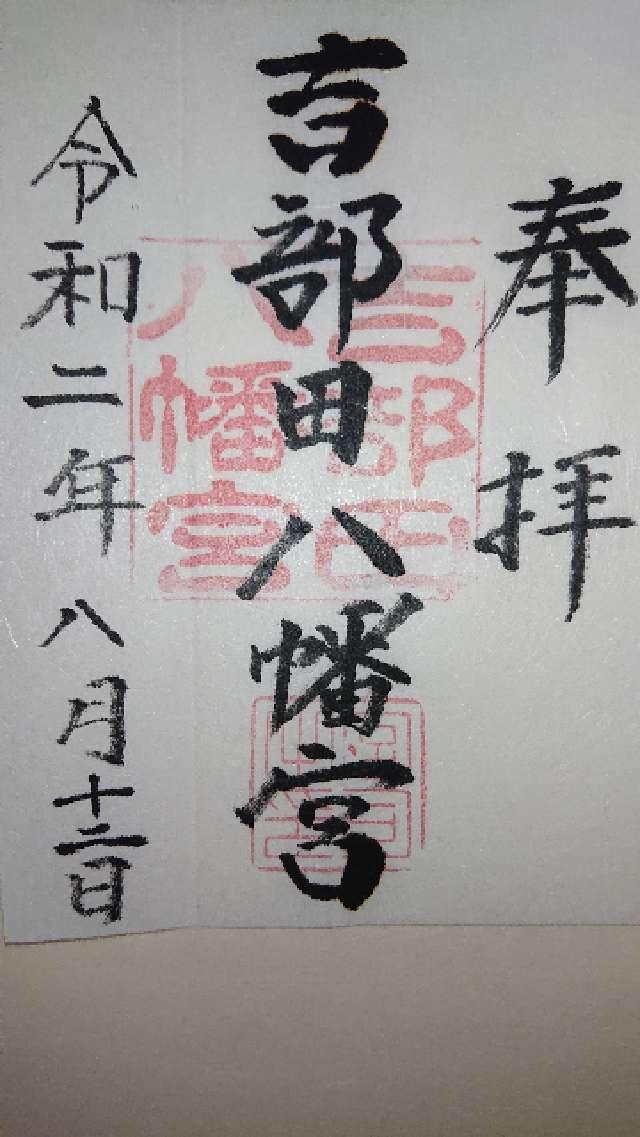 奉拝
吉部田八幡宮
令和二年八月十二日
吉部田
八幡宮